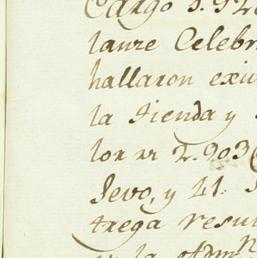 Cargo 5.928
lanze Celebr
hallaron exis
la tienda y
lor rr 2.903
Sevo, y 11.
trega resul